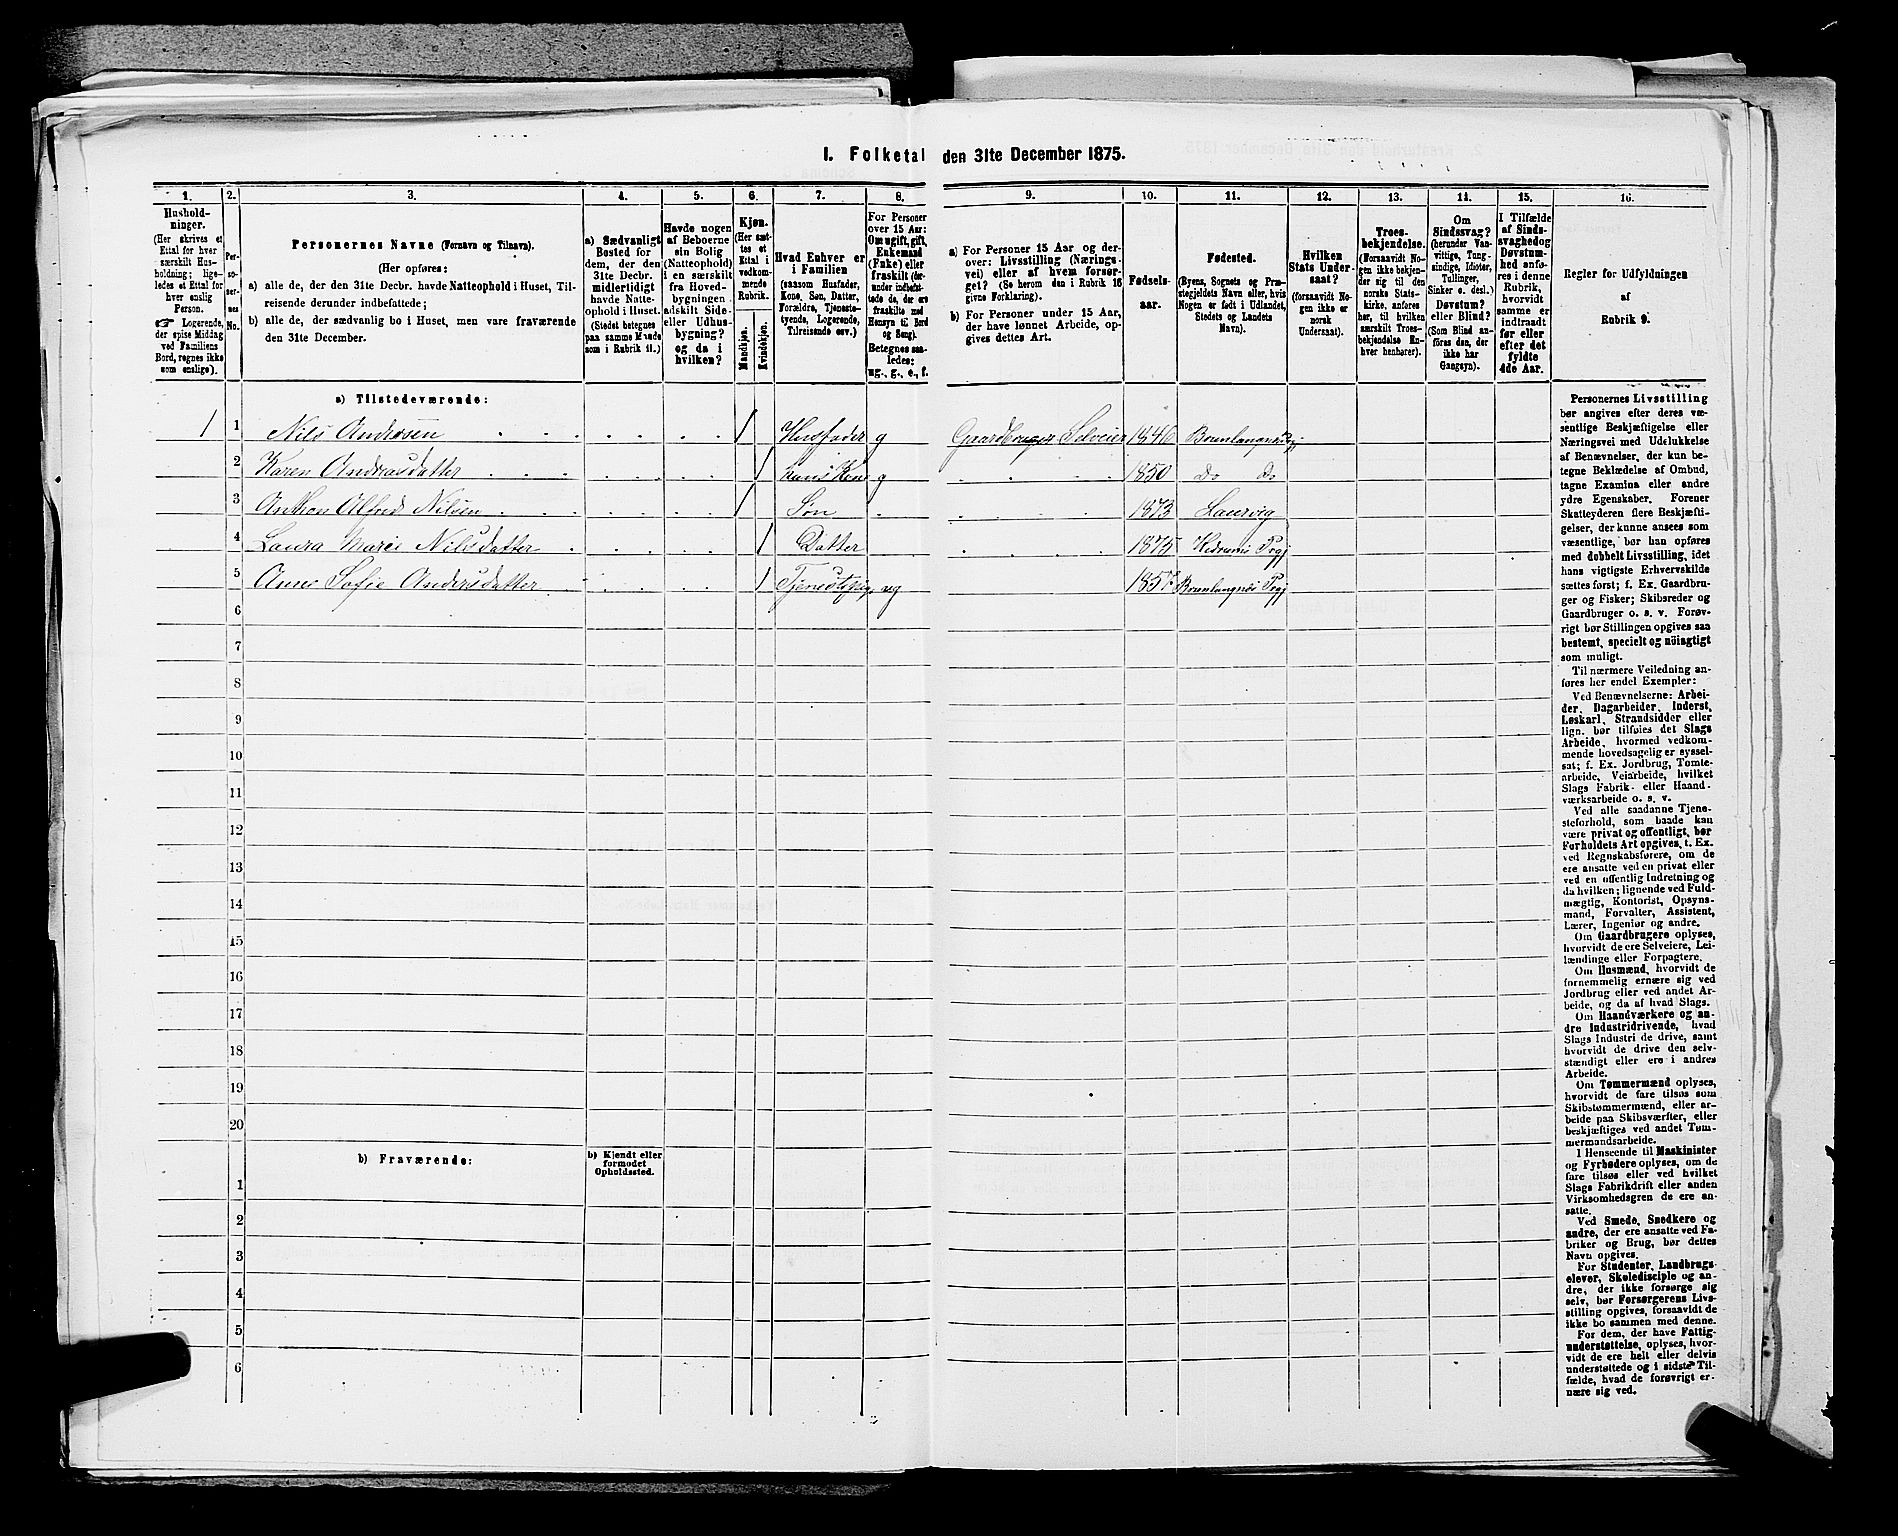 I. Folketal den 31te December 1875.
1. 2. 3. 4. 5. 6. 7. 8. 9. 10. 11. 12. 13. 14. 15. 16.
Husholdninger.
(Her skrives et
Ettal for hver
særskilt Husholdning;
ligeledes et Ettal for
hver enslig
Person.
Logerende,
der spise Middag
ved Familiens
Bord, regnes ikke
som enslige).
Personernes No.
Personernes Navne (Fornavn og Tilnavn).
(Her opføres:
a) alle de, der den 31te Decbr. havde Natteophold i Huset, Tilreisende
derunder indbefattede;
b) alle de, der sædvanlig bo i Huset, men vare fraværende
den 31te December.
a) Sædvanligt
Bosted for
dem, der den
31te Decbr.
midlertidigt
havde Natteophold
i Huset.
(Stedet betegnes
paa samme Maade
som i Rubrik 11.)
Havde nogen
af Beboerne
sin Bolig
(Natteophold)
i en særskilt
fra Hovedbygningen
adskilt Side-
eller Udhusbygning?
og da i
hvilken?
Kjøn.
(Her sættes
et
Ettal i
vedkommende
Rubrik.
Mandkjøn.
Kvindekjøn.
Hvad Enhver er
i Familien
(saasom Husfader,
Kone, Søn, Datter,
Forældre, Tjenestetyende,
Logerende,
Tilreisende osv.)
For Personer
over 15 Aar:
Om ugift, gift,
Enkemand
(Enke) eller
fraskilt
Betegnes saaledes:
ug., g., e., f.
a) For Personer 15 Aar og derover:
Livsstilling (Næringsvei)
eller af hvem forsørget?
(Se herom den i Rubrik 16
givne Forklaring).
b) For Personer under 15 Aar,
der have lønnet Arbeide, opgives
dettes Art.
Fødselsaar.
Fødested.
(Byens, Sognets og Præstegjeldets
Navn eller, hvis
Nogen er født i Udlandet,
Stedets og Landets
Navn).
Hvilken
Stats Undersaat?
(forsaavidt Nogen
ikke er
norsk
Undersaat).
Troesbekjendelse.
(Forsaavidt Nogen
ikke bekjender
sig til den
norske Statskirke,
anføres
her, til hvilken
særskilt Troesbekjendelse
Enhver
henhører).
Om
Sindssvag?
(herunder Vanvittige,
Tungsindige,
Idioter,
Tullinger,
Sinker o. desl.)
Døvstum?
eller Blind?
(Som Blind anføres
den, der
ikke har
Gangsyn).
I Tilfælde
af Sindssvaghed
og
Døvstumhed
anføres
i denne
Rubrik,
hvorvidt
samme er
indtraadt
før eller
efter det
fyldte
4de Aar.
Regler for Udfyldningen
af
Rubrik 9.
a) Tilstedeværende:
1 1 Nils Andresen 1 Husfader g Gaardbruger Selveier 1846
2 Karen Andreasdatter 1 hans Kone g 1850 Do Do
3 Anthon Alfred Nilsen 1 Søn 1873 Laurvig
4 Laura Marie Nilsdatter 1 Datter 1875 Hedrums Prgj
5 Anne Sofie Andersdatter 1 Tjenestepige ug Brunlangnæs Prgj
6
7
8
9
10
11
12
13
14
15
16
17
18
19
20
b) Fraværende:
b) Kjendt eller
formodet
Opholdssted.
1
2
3
4
5
6
Personernes Livsstilling
bør angives efter deres væsentlige
Beskjæftigelse eller
Næringsvei med Udelukkelse
af Benævnelser, der kun betegne
Beklædelse af Ombud,
tagne Examina eller andre
ydre Egenskaber. Forener
Skatteyderen flere Beskjæftigelser,
der kunne ansees som
væsentlige, bør han opføres
med dobbelt Livsstilling, idet
hans vigtigste Erhvervskilde
sættes først; f. Ex. Gaardbruger
og Fisker; Skibsreder og
Gaardbruger o. s. v. Forøvrigt
bør Stillingen opgives saa
bestemt, specielt og nöiagtigt
som muligt.
Til nærmere Veiledning anføres
her endel Exempler:
Ved Benævnelserne: Arbeider,
Dagarbeider, Inderst,
Løskarl, Strandsidder eller
lign. bør tilføies det Slags
Arbeide, hvormed vedkommende
hovedsagelig er sysselsat;
f. Ex. Jordbrug, Tomtearbeide,
Veiarbeide, hvilket
Slags Fabrik- eller Haandværksarbeide
o. s. v.
Ved alle saadanne Tjenesteforhold,
som baade kan
være privat og offentligt, bør
Forholdets Art opgives, t. Ex.
ved Regnskabsførere, om de
ere ansatte ved en privat eller
ved en offentlig Indretning og
da hvilken; lignende ved Fuldmægtig,
Kontorist, Opsynsmand,
Forvalter, Assistent,
Lærer, Ingeniør og andre.
Om Gaardbrugere oplyses,
hvorvidt de ere Selveiere, Leilændinge
eller Forpagtere.
Om Husmænd, hvorvidt de
fornemmelig ernære sig ved
Jordbrug eller ved andet Arbeide,
og da af hvad Slags.
Om Haandværkere og andre
Industridrivende, hvad
Slags Industri de drive, samt
hvorvidt de drive den selvstændigt
eller ere i andres
Arbeide.
Om Tømmermænd oplyses,
hvorvidt de fare tilsøs som
Skibstømmermænd, eller arbeide
paa Skibsværfter, eller
beskjæftiges ved andet Tømmermandsarbeide.
I Henseende til Maskinister
og Fyrbødere oplyses, om de
fare tilsøs eller ved hvilket
Slags Fabrikdrift eller anden
Virksomhedsgren de ere ansatte.
Ved Smede, Snedkere og
andre, der ere ansatte ved Fabriker
og Brug, bør dettes
Navn opgives.
For Studenter, Landbrugselever,
Skoledisciple og andre,
der ikke forsørge sig
selv, bør Forsørgerens Livsstilling
opgives, forsaavidt de
ikke bo sammen med denne.
For dem, der have Fattigunderstøttelse,
oplyses, hvorvidt
de ere helt eller delvis
understøttede og i sidste Tilfælde,
hvad de forøvrigt ernære
sig ved.